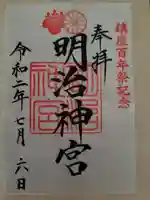 鎮座百年祭記念
奉拝
明治神宮
令和二年七月六日